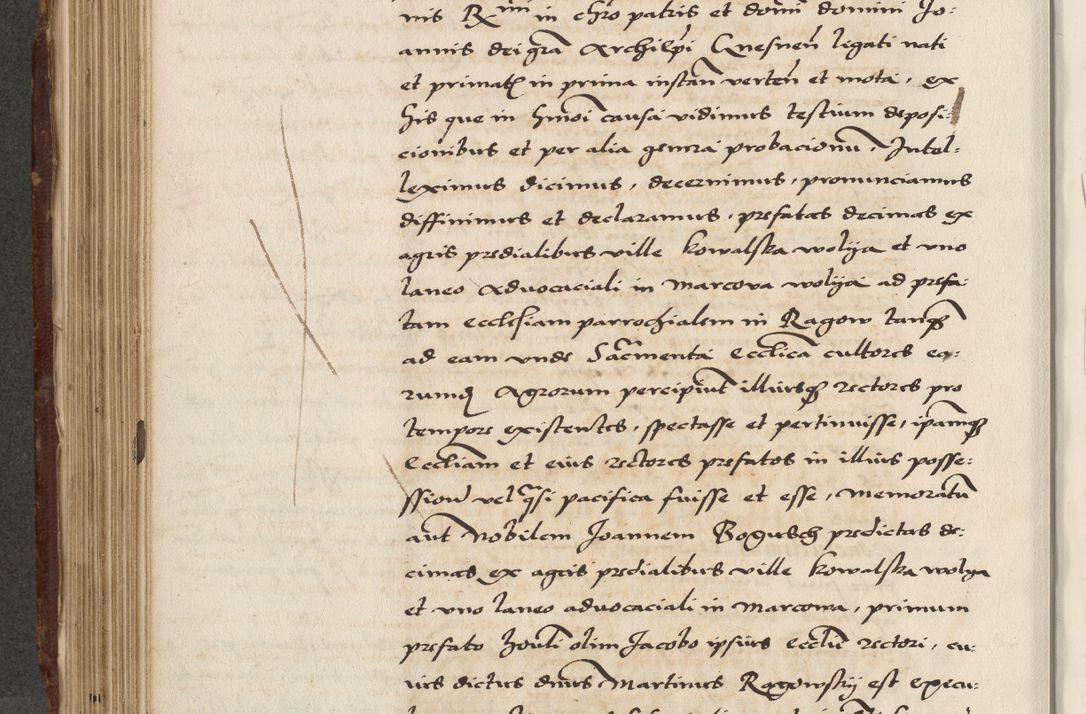 nis R̃mi in chr̃o patris et domĩ domini Jo:
annis dei gr̃a Archiep̃i Gnesneñ legati nati
et primat̃ in prima instañ verteñ et mota, ex
his que in hmõi causa vidimus testium deposi:
cionibus et per alia genera probacionũ, Intel:
leximus dicimus, decernimus, pronunciamus
diffinimus et declaramus, prefatas decimas ex
agris predialibus ville kowalska wolya et vno
laneo Aduocaciali in Marcova wolija ad prefa:
tam Ecclesiam parrochialem in Ragow tanq̃
ad eam vnde Sacr̃menta Eccl̃ica cultores eo:
rumdẽ Agrorum percipiũt illiusq̃ rectores pro
tempore existentes, spectasse et pertinuisse, ip̃amq̃
Eccl̃iam et eius rectores prefatos in illius posse:
ssioñ vel q̃si pacifica fuisse et esse, Memoratũ
aũt Nobilem Joannem Bogusch predictas de:
cimas ex agris predialibus ville kowalska wolya
et vno laneo aduocaciali in Marcowa, primum
prefato honl̃i olim Jacobo ipsius Eccl̃ie rectori, cu:
ius dictus dñus Martinus Ragowskij est execu: